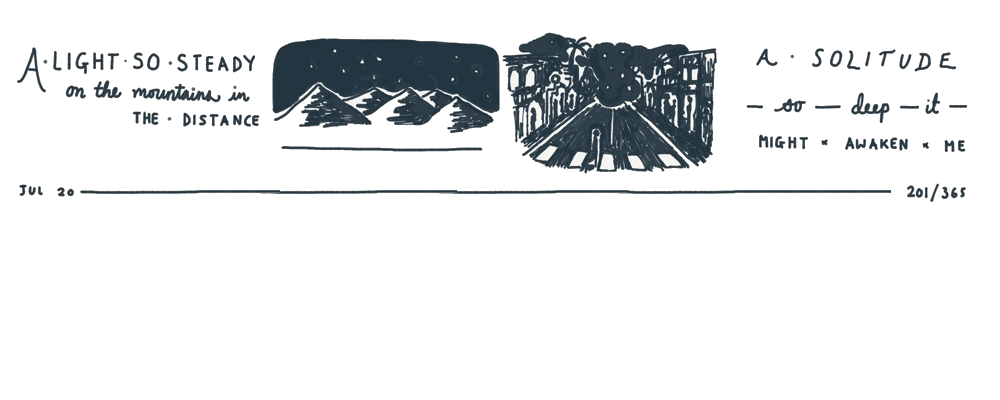 A · LIGHT · SO · STEADY
on the mountains in
THE · DISTANCE
A · SOLITUDE
— so — deep — it —
MIGHT × AWAKEN × ME
JUL 20
201/365